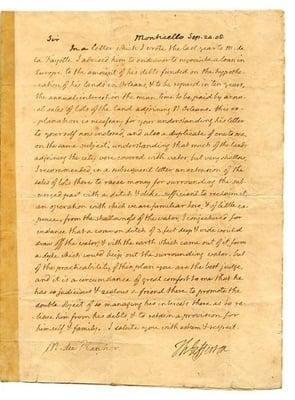 Sir Monticello Sep. 24. 08
In a letter which I wrote the last year to M. de
la Fayette I advised him to endeavor to negociate a loan in
Europe to the amount of his debts funded on the hypothe-
cation of his lands in Orleans, & to be repaid in ten years,
the annual interest in the mean time to be paid by annu-
al sales of lots of the land adjoining N. Orleans. this ex-
planation is necessary for your understanding his letter
to yourself now inclosed, and also a duplicate of one to me,
on the same subject. understanding that much of the lands
adjoining the city were covered with water, but very shallow,
I recommended in a subsequent letter an extension of the
sales of lots there to raise money for surrounding the
part with a ditch & dyke sufficient to
an operation with which we are familiar here & of little ex-
pence. from the shallowness of the water, I conjectured for
instance that a common ditch of 4 feet deep & wide would
draw off the water, & with the earth which came out of it form
a dyke which would keep out the surrounding water. but
of the practicability of this plan you are the best judge,
and it is a circumstance of great comfort to me that he
has so judicious & zealous a friend there to promote the
double object of so managing his interests there as to re-
lieve him from his debts & to retain a provision for
himself & family. I salute you with esteem & respect.
Th: Jefferson
M.